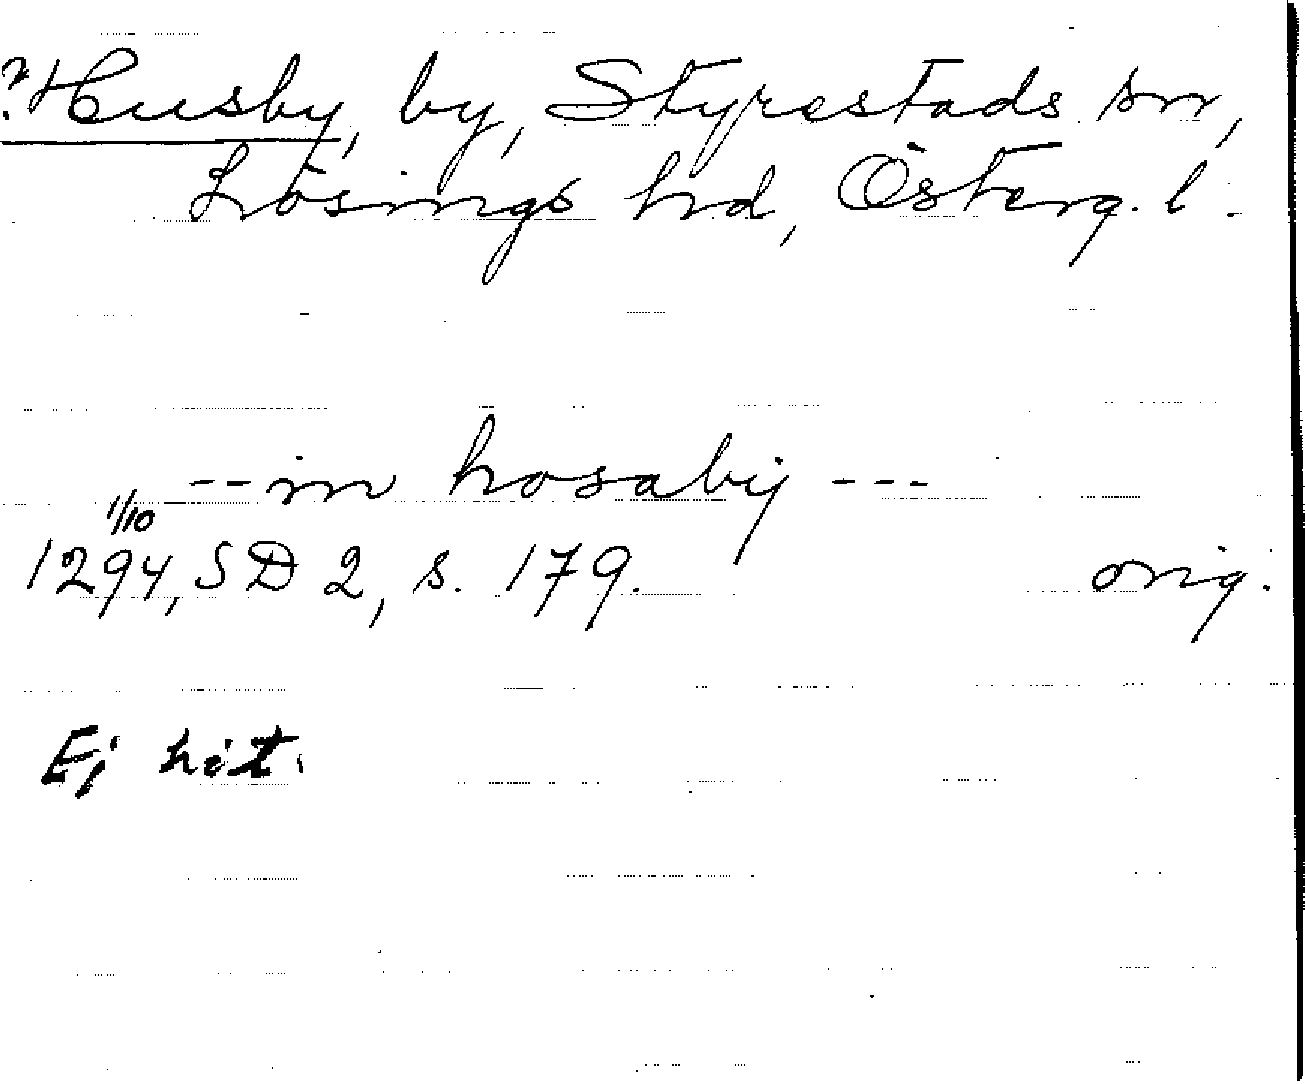 ? Husby, by, Styrestads sn,
Lösings hd, Österg. l.
-- in hosabij ---
1/10
1294, SD 2, s. 179. orig.
Ej hit.